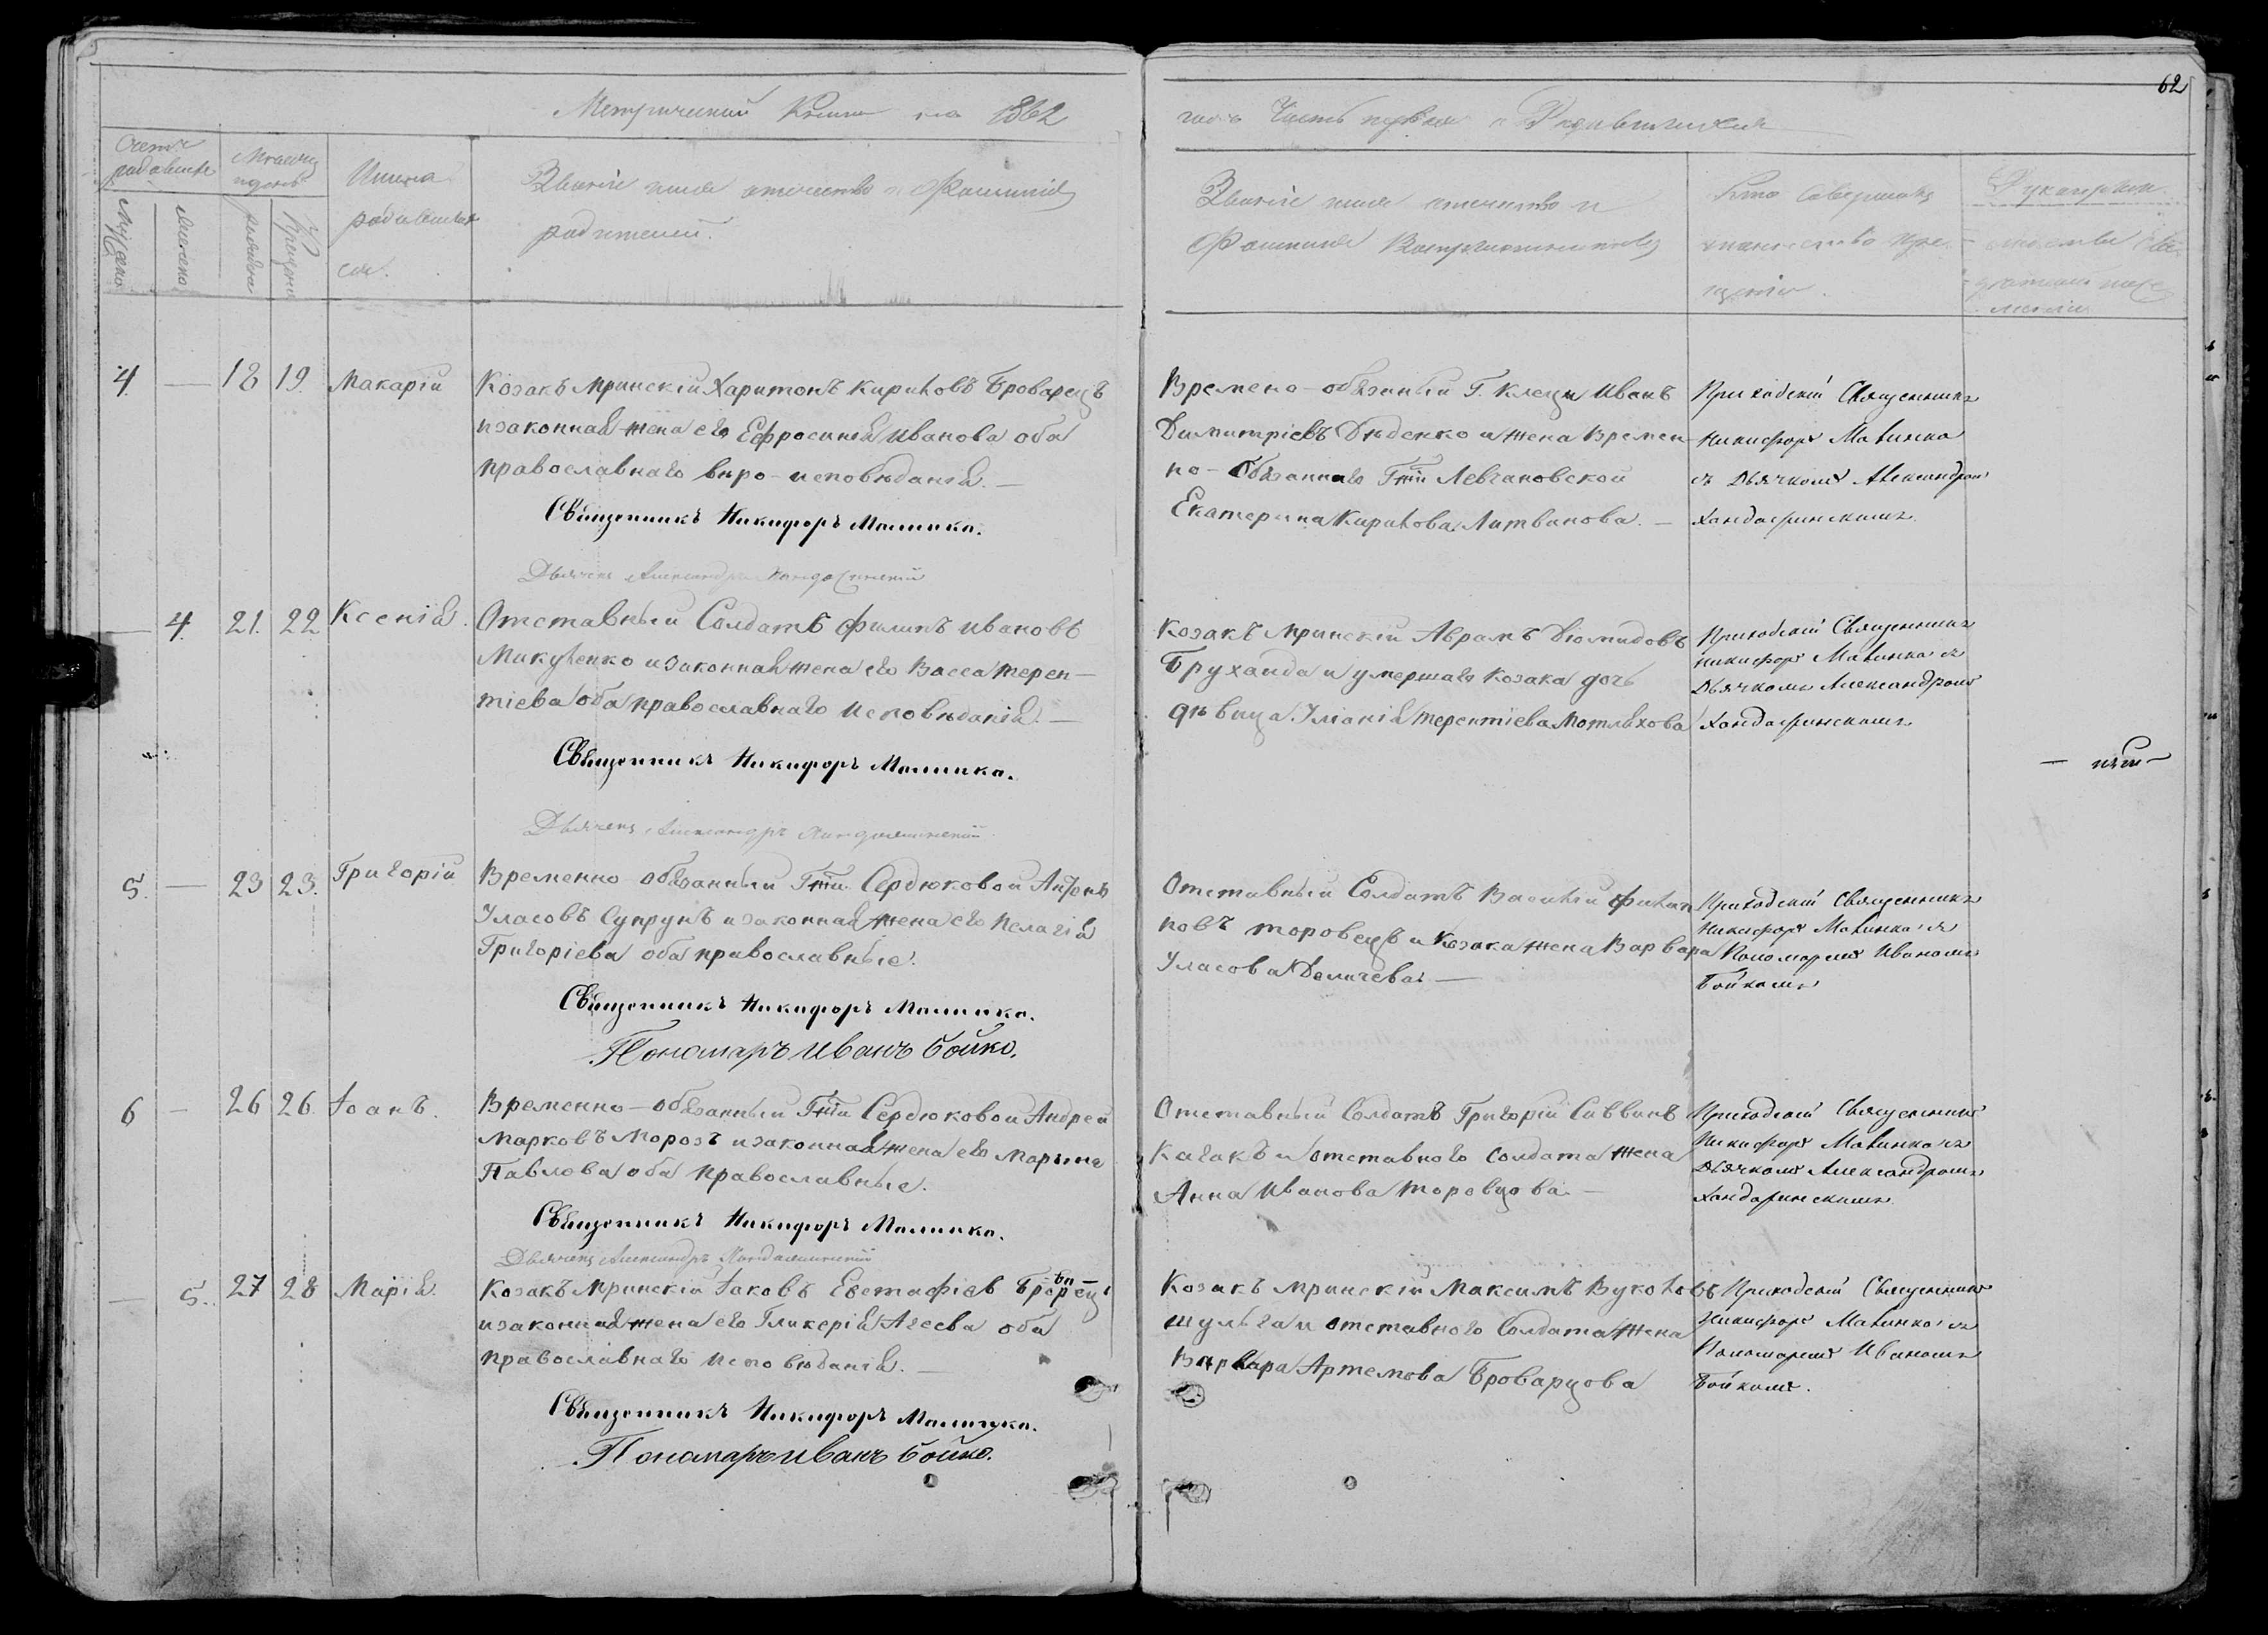 62
Метрической Книги на 1862
годъ Часть первая о Родившихся
Счетъ родившихся
Мѣсяцъ и день
Имена родившихся
Званіе имя отчество и Фамилія родителей.
Званіе имя отчество и Фамилія Воспріемниковъ
Кто совершалъ таинство крещенія.
Рукоприкладство свидѣтелей
Мужеска
Женска
рожденія
Крещенія
4. — 18 19 Макарій
Козакъ Мринскій Харитонъ Кириловъ Броварецъ
и законная жена его Ефросинія Иванова оба
православнаго вѣро-исповѣданія. —
Священникъ Никифоръ Малинка.
Дьячекъ Александръ
Времено-обязаный Г. Клеци Иванъ
Димитріевъ Дѣденко и жена Времен
но-Обязаннаго Гжи Левчановской
Екатерина Кирилова Литвинова. —
Приходскій Священникъ
Никифоръ Малинка
съ Дьячкомъ Александромъ
— 4. 21. 22 Ксенія.
Отставный Солдатъ Филипъ Ивановъ
Микуленко и законная жена его Васса Терен-
тіева оба православнаго Исповѣданія. —
Священникъ Никифоръ Малинка.
Дьячекъ Александръ
Козакъ Мринскій Аврамъ Дюмидовъ
Бруханда и умершаго Козака дочь
дѣвица Уліанія Терентіева Мотляхова
Приходскій Священникъ
Никифоръ Малинка съ
Дьячкомъ Александромъ
5. — 23 23. Григорій
Временно-обязанный Гжи Сердюковой Антонъ
Уласовъ Супрунъ и законная жена его Пелагія
Григоріева оба православные.
Священникъ Никифоръ Малинка.
Пономаръ Иванъ Бойко.
Отставный Солдатъ Василій Филип
повъ Торовецъ и Козака жена Варвара
Уласова
Приходскій Священникъ
Никифоръ Малинка съ
Пономаремъ Иваномъ
Бойкомъ
6 — 26 26. Іоанъ.
Временно-обязанный Гжи Сердюковой Андрей
Марковъ Морозъ и законная жена его Марина
Павлова оба Православные.
Священникъ Никифоръ Малинка.
Дьячекъ Александръ
Отставный Солдатъ Григорій Саввинъ
Качакъ и отставного солдата жена
Анна Иванова Торовцова. —
Приходскій Священникъ
Никифоръ Малинка съ
Дьячкомъ Александромъ
— 5. 27 28 Марія.
Козакъ Мринскій Іаковъ Евстафіев Броварецъ
и законная жена его Гликерія Агеева оба
православнаго Исповѣданія. —
Священникъ Никифоръ Малинка.
Пономаръ Иванъ Бойко.
Козакъ Мринскій Максимъ Вуколовъ
Шульга и отставного Солдата жена
Варвара Артемова Броварцова
Приходскій Священникъ
Никифоръ Малинка съ
Пономаремъ Иваномъ
Бойкомъ.